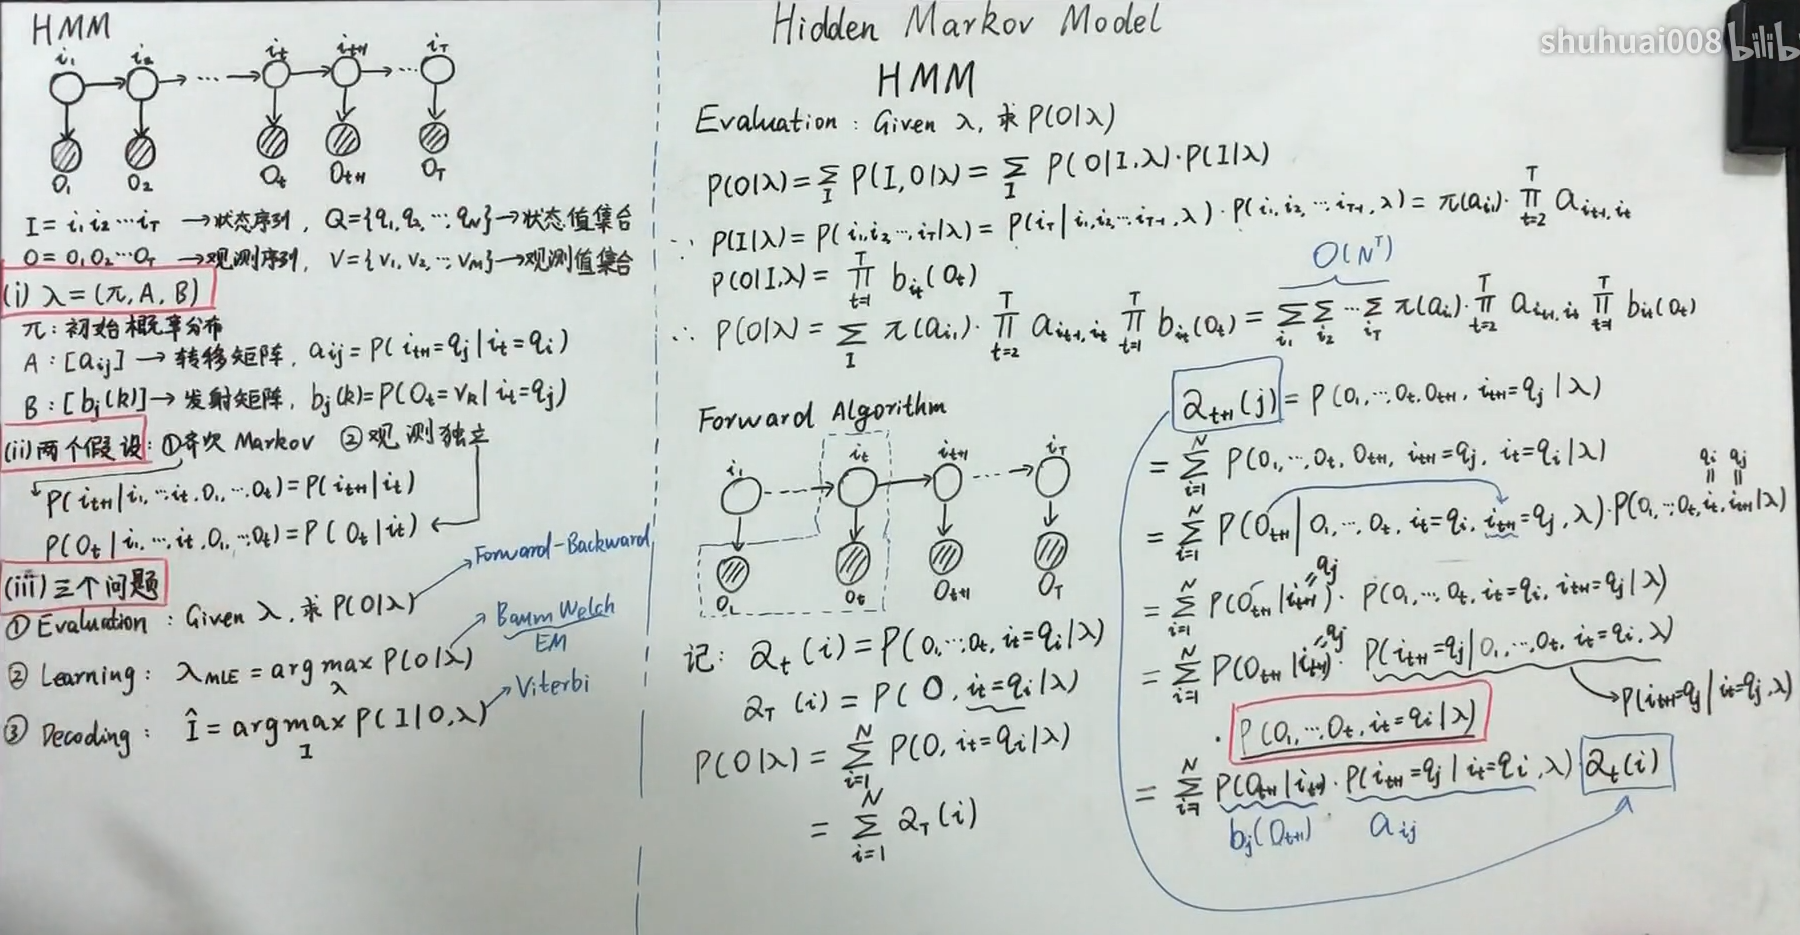 HMM
i₁ i₂ iₜ iₜ₊₁ i_T
→ → ··· → → → ···
o₁ o₂ oₜ oₜ₊₁ o_T
I = i₁ i₂ ··· i_T → 状态序列, Q = {q₁, q₂, ··· q_N} → 状态值集合
O = o₁ o₂ ··· o_T → 观测序列, V = {v₁, v₂, ··· v_M} → 观测值集合
(i) λ = (π, A, B)
π: 初始概率分布
A: [a_ij] → 转移矩阵, a_ij = P(iₜ₊₁ = q_j | iₜ = q_i)
B: [b_j(k)] → 发射矩阵, b_j(k) = P(oₜ = v_k | iₜ = q_j)
(ii) 两个假设: ① 齐次 Markov ② 观测独立
P(iₜ₊₁ | i₁, ··· iₜ, o₁, ··· oₜ) = P(iₜ₊₁ | iₜ)
P(oₜ | i₁, ··· iₜ, o₁, ··· oₜ) = P(oₜ | iₜ)
(iii) 三个问题
Forward-Backward
① Evaluation: Given λ, 求 P(O|λ)
Baum Welch
EM
② Learning: λ_MLE = arg max_λ P(O|λ)
Viterbi
③ Decoding: Î = arg max_I P(I|O, λ)
Hidden Markov Model
shuhuai008 bilib
HMM
Evaluation: Given λ, 求 P(O|λ)
P(O|λ) = Σ_I P(I, O|λ) = Σ_I P(O|I, λ) · P(I|λ)
∵ P(I|λ) = P(i₁, i₂, ··· i_T|λ) = P(i_T | i₁, i₂, ··· i_T-1, λ) · P(i₁, i₂, ··· i_T-1, λ) = π(a_i₁) · ∏_{t=2}^T a_{iₜ₋₁, iₜ}
P(O|I, λ) = ∏_{t=1}^T b_{iₜ}(oₜ)
O(N^T)
∴ P(O|λ) = Σ_I π(a_i₁) · ∏_{t=2}^T a_{iₜ₋₁, iₜ} ∏_{t=1}^T b_{iₜ}(oₜ) = Σ_i₁ Σ_i₂ ··· Σ_i_T π(a_i₁) · ∏_{t=2}^T a_{iₜ₋₁, iₜ} ∏_{t=1}^T b_{iₜ}(oₜ)
Forward Algorithm
i₁ iₜ iₜ₊₁ i_T
o₁ oₜ oₜ₊₁ o_T
记: αₜ(i) = P(o₁, ··· oₜ, iₜ = q_i | λ)
α_T(i) = P(O, iₜ = q_i | λ)
P(O|λ) = Σ_{i=1}^N P(O, iₜ = q_i | λ)
= Σ_{i=1}^N α_T(i)
αₜ₊₁(j) = P(o₁, ··· oₜ, oₜ₊₁, iₜ₊₁ = q_j | λ)
= Σ_{i=1}^N P(o₁, ··· oₜ, oₜ₊₁, iₜ₊₁ = q_j, iₜ = q_i | λ)
q_i q_j
= Σ_{i=1}^N P(oₜ₊₁ | o₁, ··· oₜ, iₜ = q_i, iₜ₊₁ = q_j, λ) · P(o₁, ··· oₜ, iₜ, iₜ₊₁ | λ)
= Σ_{i=1}^N P(oₜ₊₁ | iₜ₊₁ = q_j) · P(o₁, ··· oₜ, iₜ = q_i, iₜ₊₁ = q_j | λ)
= Σ_{i=1}^N P(oₜ₊₁ | iₜ₊₁ = q_j) · P(iₜ₊₁ = q_j | o₁, ··· oₜ, iₜ = q_i, λ)
→ P(iₜ₊₁ = q_j | iₜ = q_j, λ)
· P(o₁, ··· oₜ, iₜ = q_i | λ)
= Σ_{i=1}^N P(oₜ₊₁ | iₜ₊₁) · P(iₜ₊₁ = q_j | iₜ = q_i, λ) αₜ(i)
b_j(oₜ₊₁) a_ij